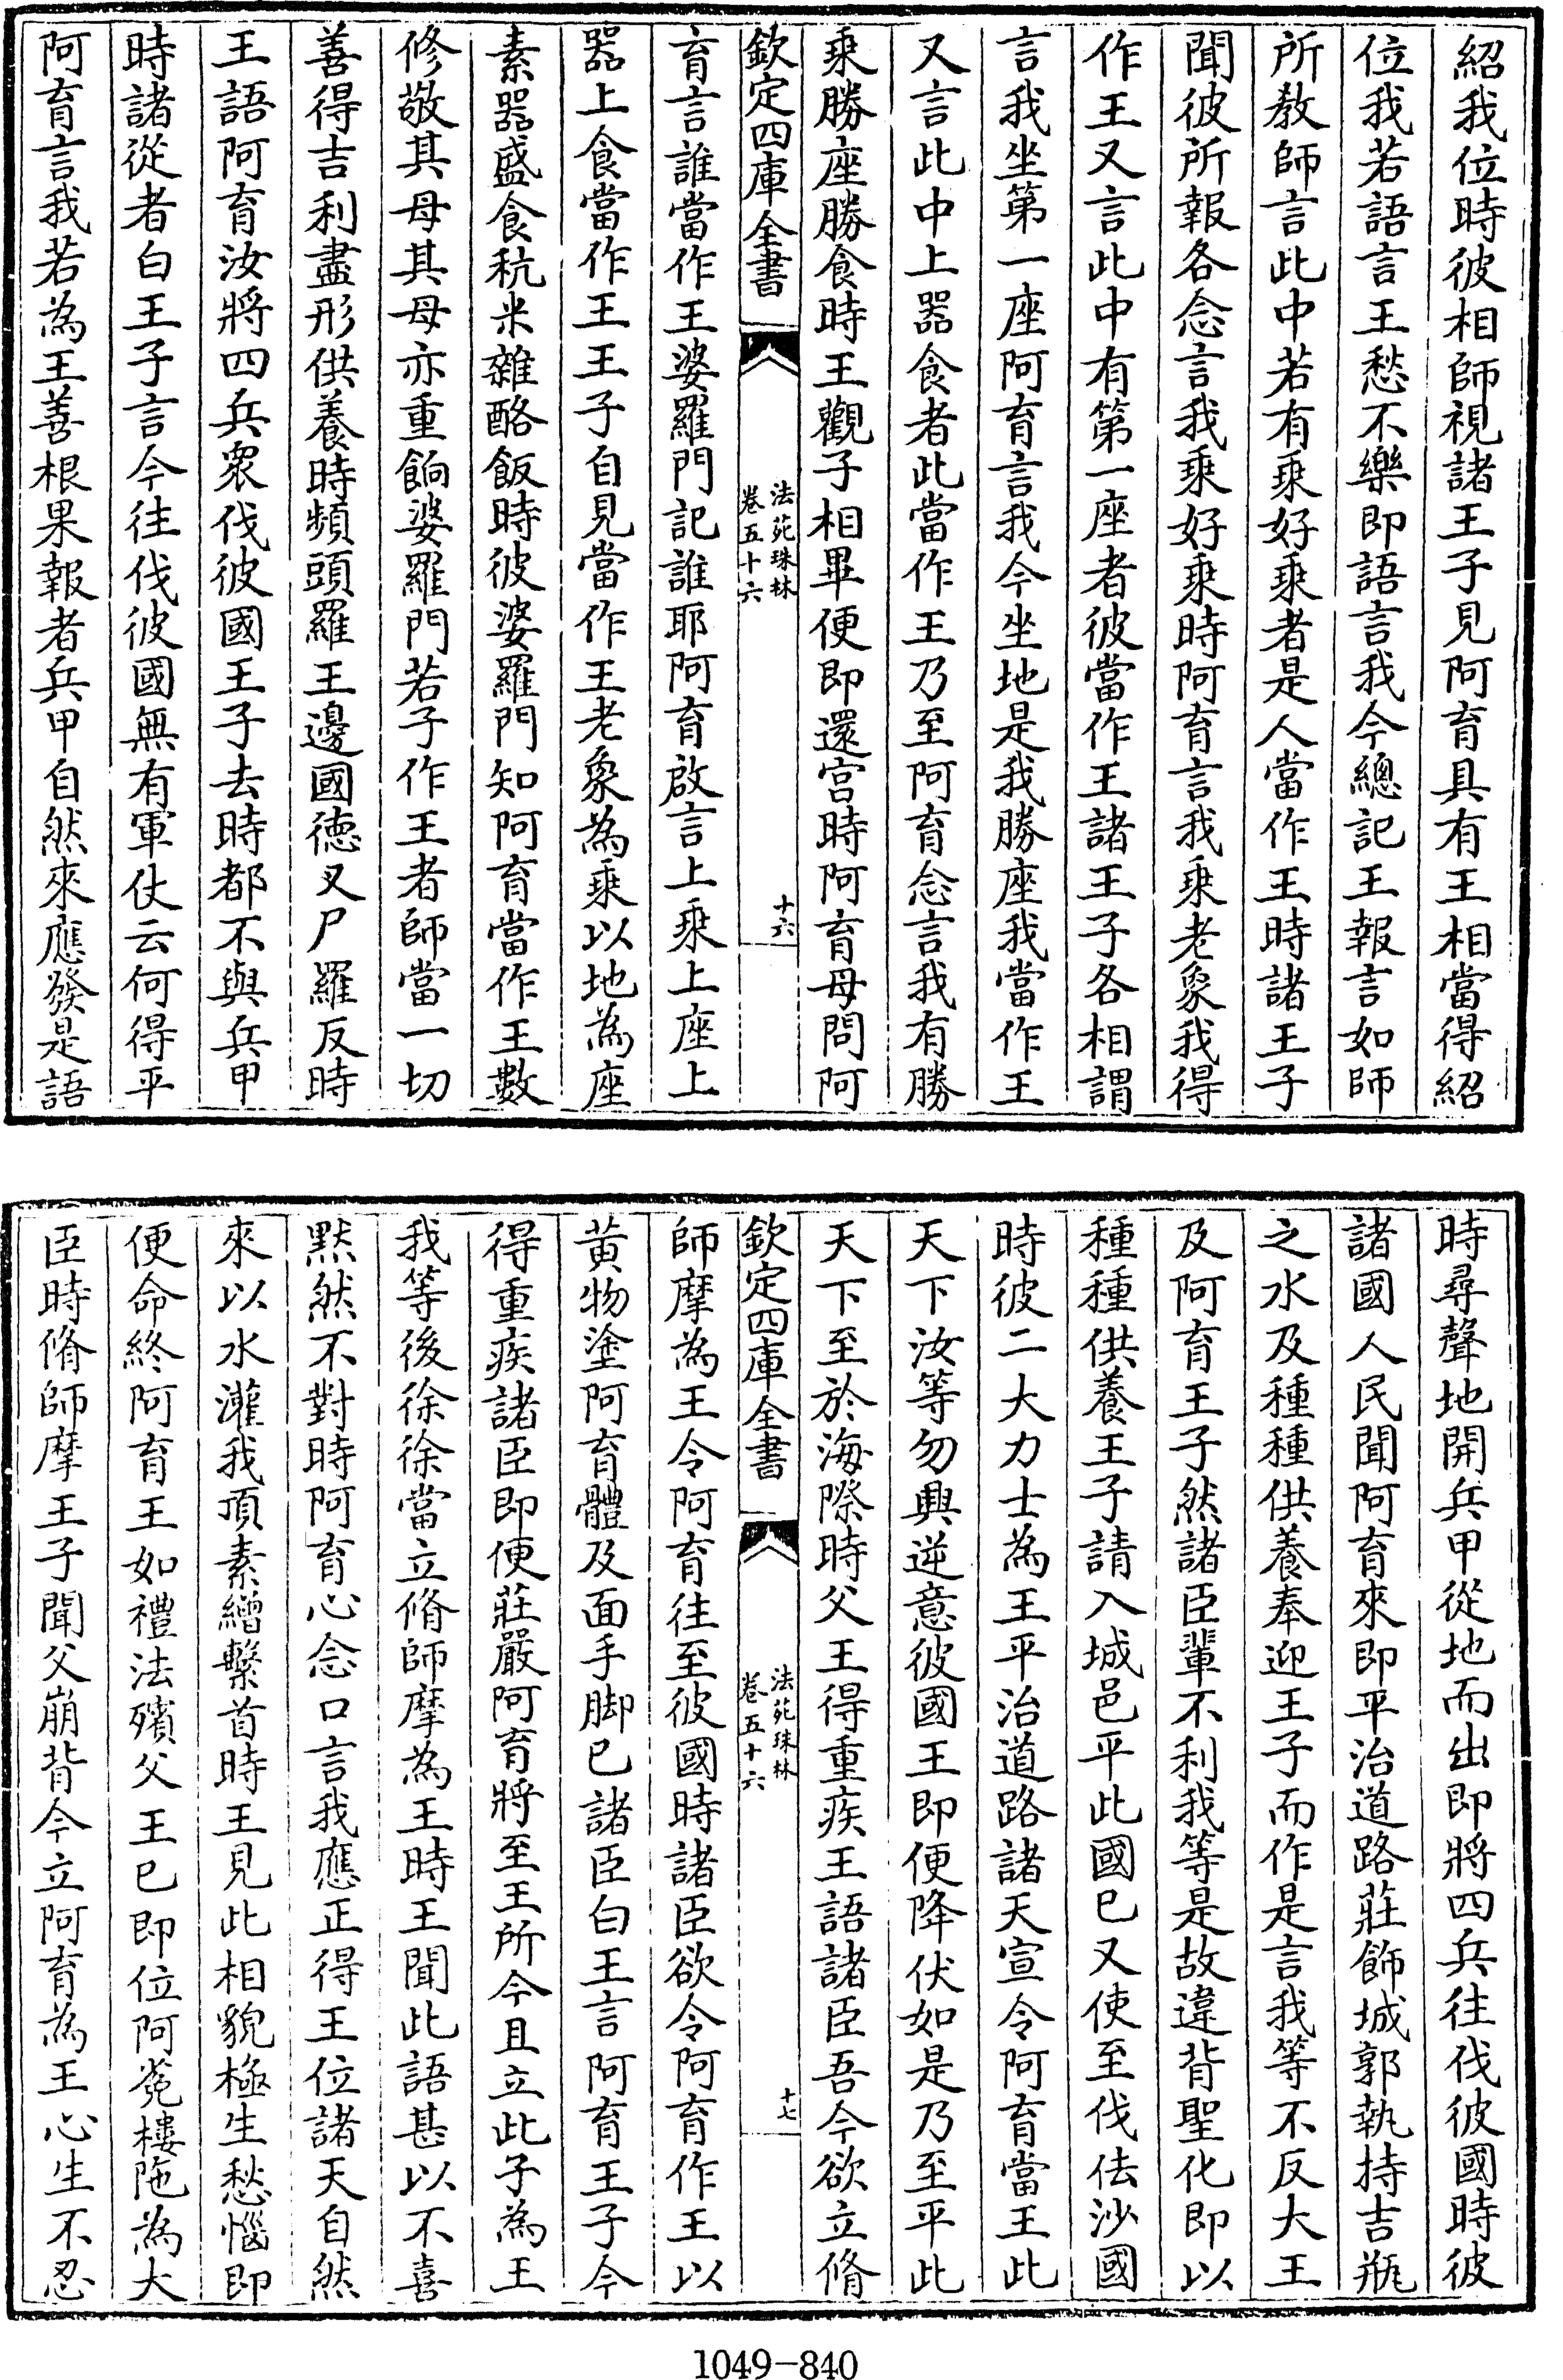 紹我位時彼相師視諸王子見阿育具有王相當得紹
位我若語言王愁不樂即語言我今總記王報言如師
所教師言此中若有乘好乘者是人當作王時諸王子
聞彼所報各念言我乘好乘時阿育言我乘老象我得
作王又言此中有第一座者彼當作王諸王子各相謂
言我坐第一座阿育言我今坐地是我勝座我當作王
又言此中上器食者此當作王乃至阿育念言我有勝
乘勝座勝食時王觀子相畢便即還宫時阿育母問阿
欽定四庫全書
法苑珠林
卷五十六
十六
育言誰當作王婆羅門記誰耶阿育啟言上乘上座上
器上食當作王王子自見當作王老象為乘以地為座
素器盛食秔米雜酪飯時彼婆羅門知阿育當作王數
修敬其母其母亦重餉婆羅門若子作王者師當一切
善得吉利盡形供養時頻頭羅王邊國德叉尸羅反時
王語阿育汝將四兵衆伐彼國王子去時都不與兵甲
時諸從者白王子言今往伐彼國無有軍仗云何得平
阿育言我若為王善根果報者兵甲自然來應發是語
時尋聲地開兵甲從地而出即將四兵往伐彼國時彼
諸國人民聞阿育來即平治道路莊飾城郭執持吉瓶
之水及種種供養奉迎王子而作是言我等不反大王
及阿育王子然諸臣輩不利我等是故違背聖化即以
種種供養王子請入城邑平此國已又使至伐佉沙國
時彼二大力士為王平治道路諸天宣令阿育當王此
天下汝等勿興逆意彼國王即便降伏如是乃至平此
天下至於海際時父王得重疾王語諸臣吾今欲立脩
欽定四庫全書
法苑珠林
卷五十六
十七
師摩為王令阿育往至彼國時諸臣欲令阿育作王以
黄物塗阿育體及面手脚已諸臣白王言阿育王子今
得重疾諸臣即便莊嚴阿育將至王所今且立此子為王
我等後徐徐當立脩師摩為王時王聞此語甚以不喜
黙然不對時阿育心念口言我應正得王位諸天自然
來以水灌我頂素繒繫首時王見此相貌極生愁惱即
便命終阿育王如禮法殯父王已即位阿㝹樓陁為大
臣時脩師摩王子聞父崩背今立阿育為王心生不忍
1049-840